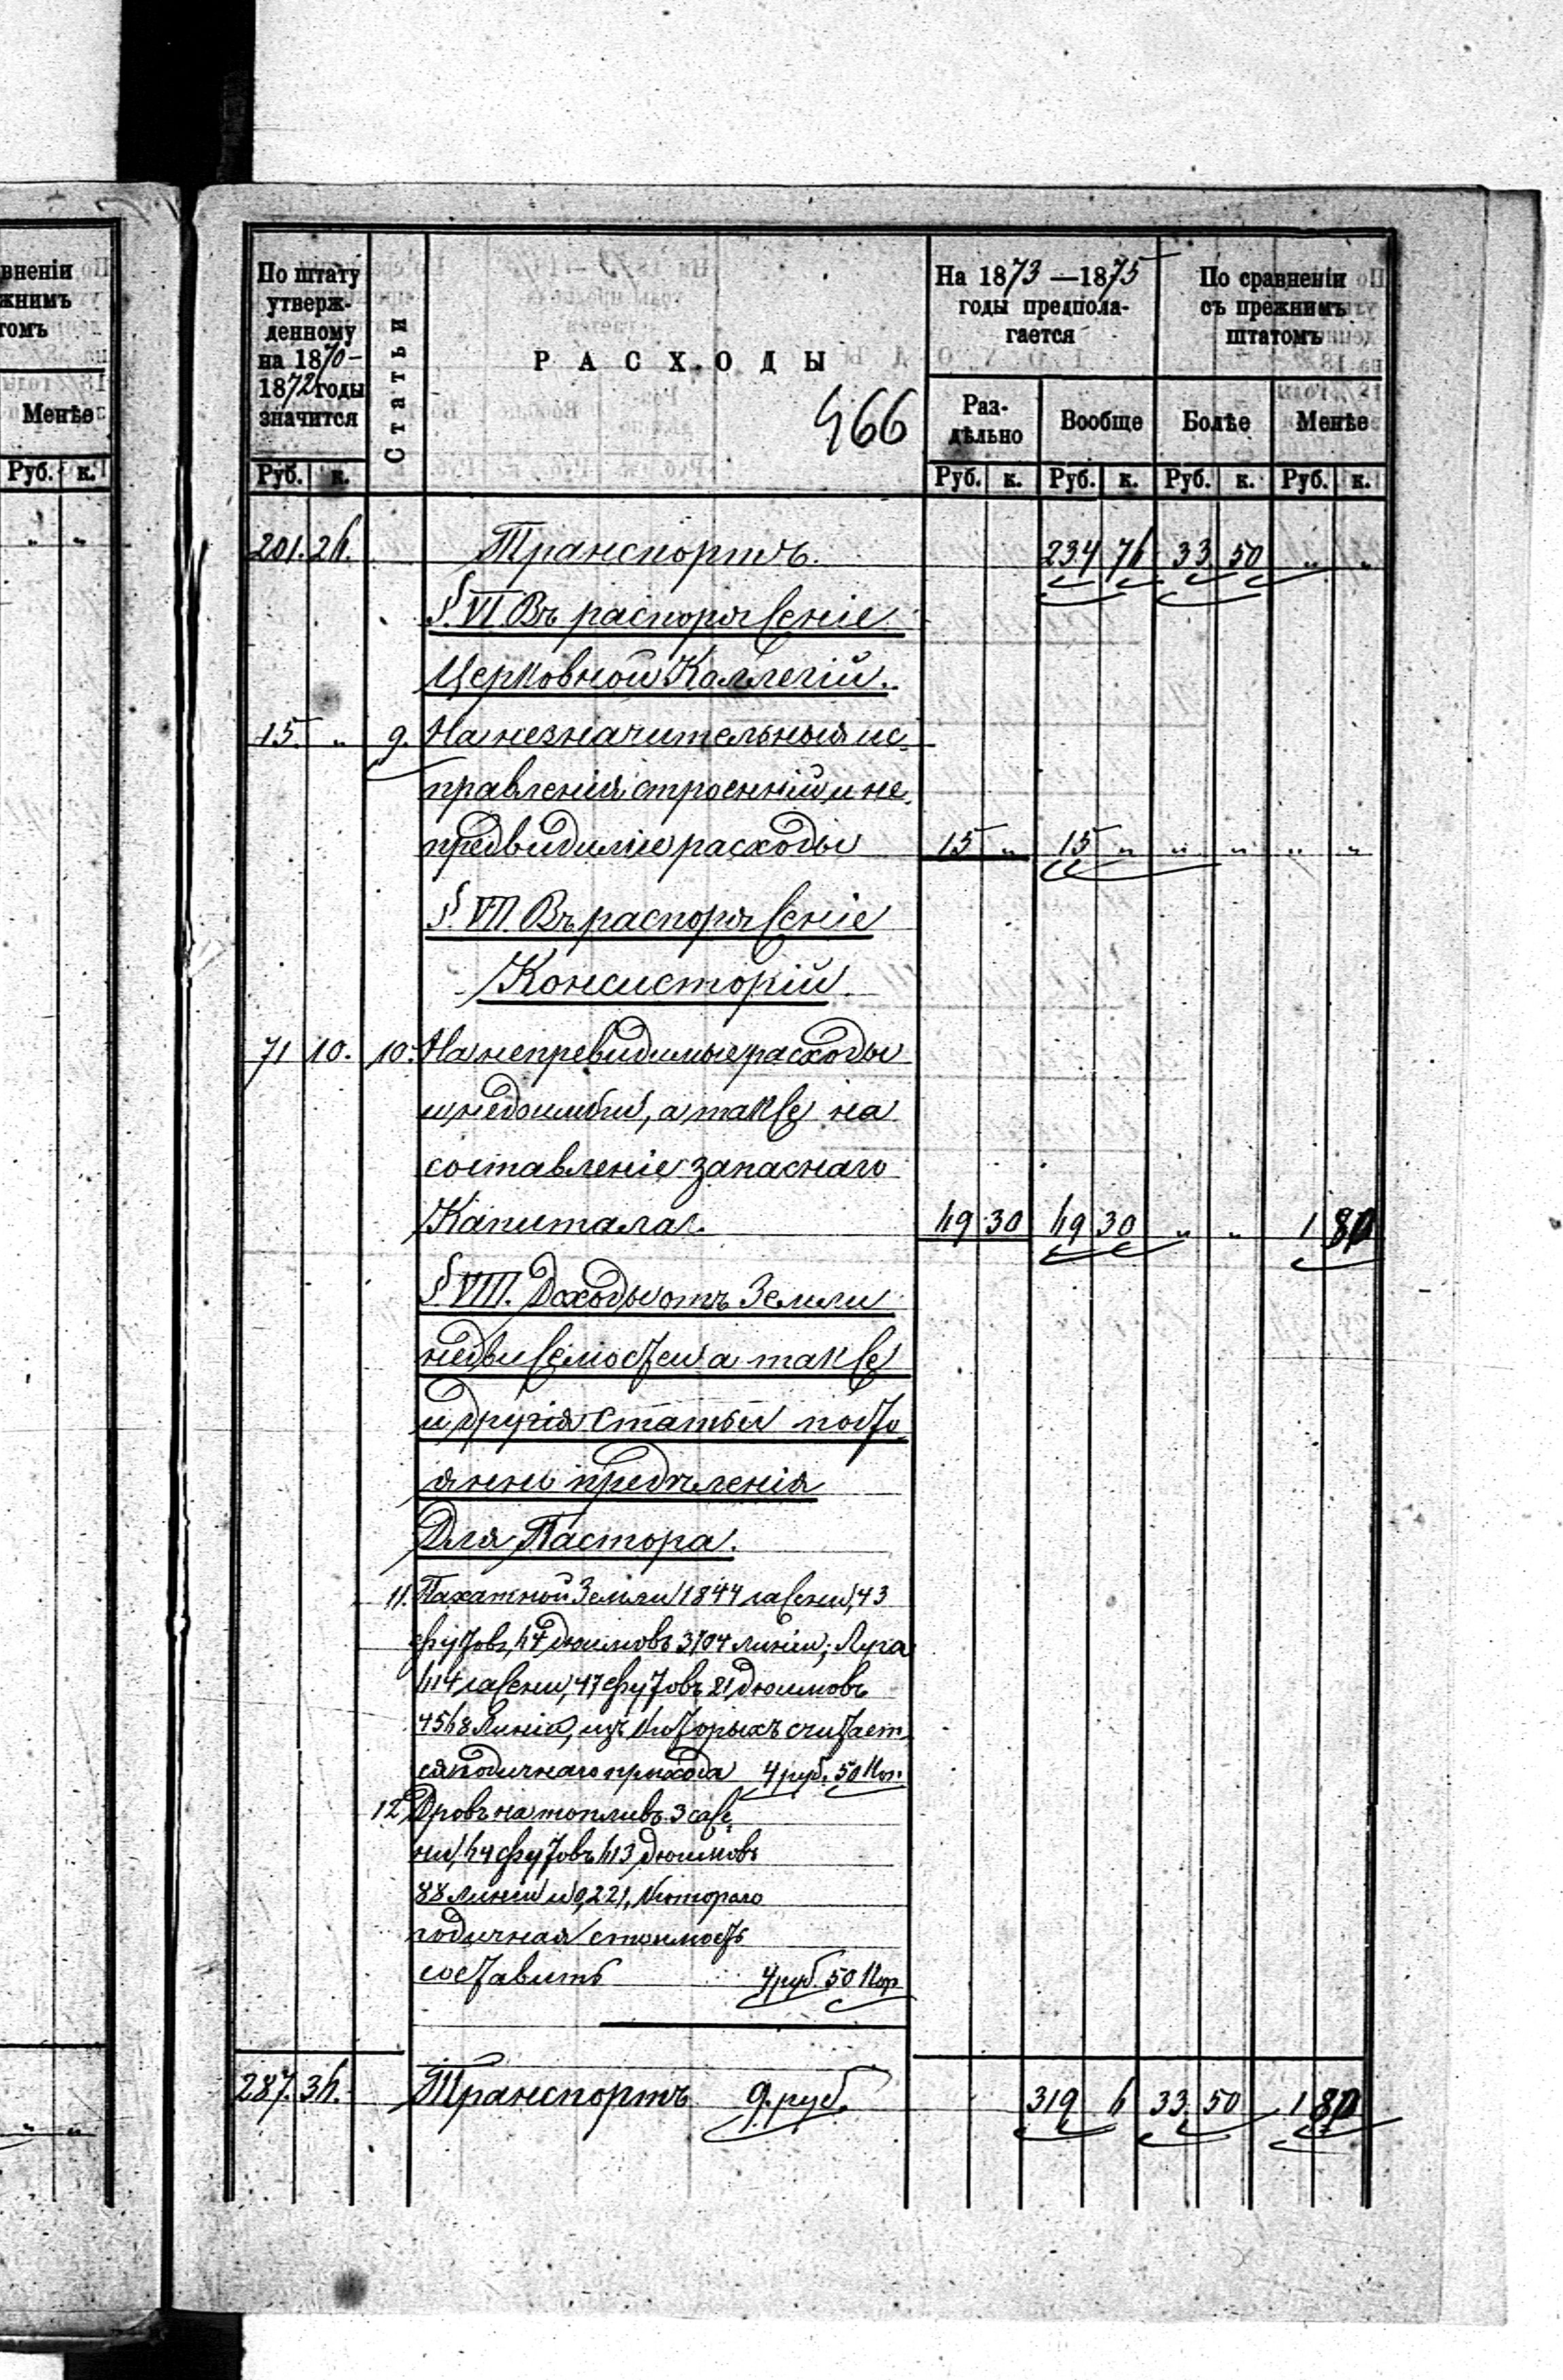 вненіи
жнимъ
томъ
Менѣе
Руб. к.
„ „
„ „
По штату
утверж-
денному
на 1870-
1872 годы
значится
Руб. к.
Статьи
РАСХОДЫ
466
На 1873—1875
годы предпола-
гается
Раз-
дѣльно
Вообще
Руб. к. Руб. к.
По сравненіи
съ прежнимъ
штатомъ
Болѣе Менѣе
Руб. к. Руб. к.
201. 26. Транспортъ. 234 76 33 50 „ „
§. VI. Въ распоряженіе
Церковной Коллегіи.
15. „ 9. На незначительныя ис-
правленія строеній и не-
предвидиміе расходы 15 „ 15 „ „ „ „ „
§. VII. Въ распоряженіе
Консисторіи
71 10. 10. На непревидимые расходы
и недоимки, а также на
составленіе запаснаго
Капитала. 69 30 69 30 „ „ 1 80
§. VIII. Доходы отъ Земли
недвижемостеи а также
и другія статьи посто-
янно предѣленія
Для Пастора.
11. Пахатной Земли 1844 сажени, 43
футовъ, 64 дюимовъ 3704 линіи; Луга
614 сажени, 47 футовъ 21 дюимовъ
4568 линіи, изъ которыхъ считает-
ся годичнаго прихода 4 руб. 50 Коп.
12. Дровъ на топливъ 3 саже-
ни, 64 футовъ 613 дюимовъ
88 линіи и 0,221, котораго
годичная стоимость
составитъ 4 руб. 50 Коп
287. 36. Транспортъ 9. руб. 319 6 33 50 1 80